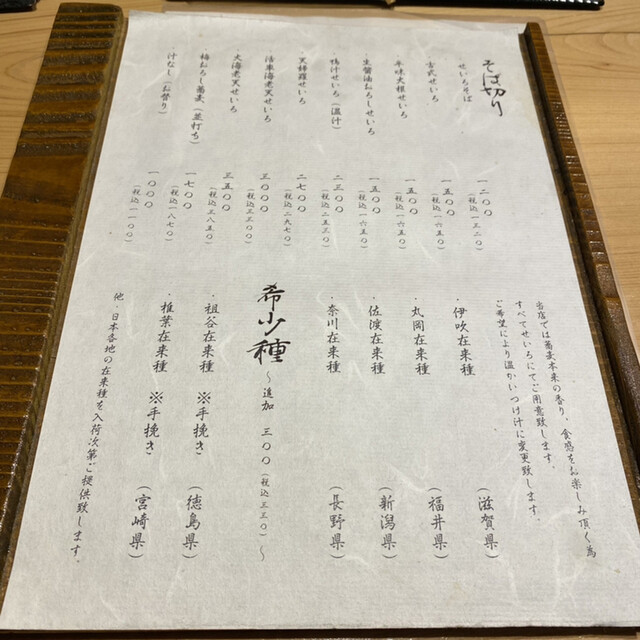 そば切り
・せいろそば 一二〇〇(税込一三二〇)
・古式せいろ 一五〇〇(税込一六五〇)
・辛味大根せいろ 一五〇〇(税込一六五〇)
・生醤油おろしせいろ 一五〇〇(税込一六五〇)
・鴨汁せいろ(温汁) 二三〇〇(税込二五三〇)
・天麩羅せいろ 二七〇〇(税込二九七〇)
・活車海老天せいろ 三〇〇〇(税込三三〇〇)
・大海老天せいろ 三五〇〇(税込三八五〇)
・梅おろし蕎麦(並打ち) 一七〇〇(税込一八七〇)
・汁なし(お替り) 一〇〇〇(税込一一〇〇)
当店では蕎麦本来の香り、食感をお楽しみ頂く為
すべてせいろにてご用意致します。
ご希望により温かいつけ汁に変更致します。
・伊吹在来種 (滋賀県)
・丸岡在来種 (福井県)
・佐渡在来種 (新潟県)
・奈川在来種 (長野県)
希少種 ~追加 三〇〇(税込三三〇)~
・祖谷在来種 ※手挽き (徳島県)
・椎葉在来種 ※手挽き (宮崎県)
他 日本各地の在来種を入荷次第ご提供致します。